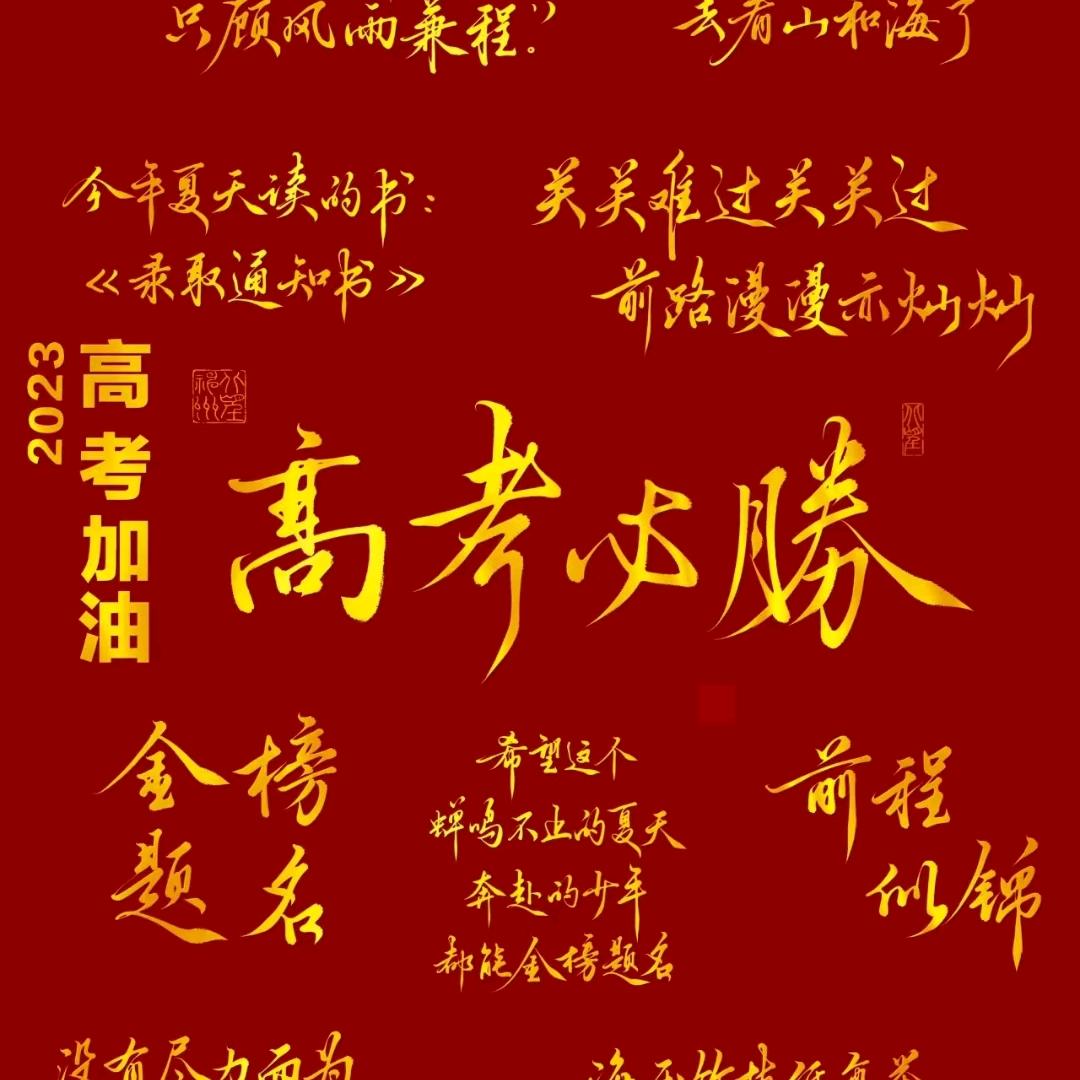 只顾风雨兼程。”
去看山和海了
今年夏天读的书：
《录取通知书》
关关难过关关过
前路漫漫亦灿灿
2023
高考加油
高考必勝
金榜
题名
希望这个
蝉鸣不止的夏天
奔赴的少年
都能金榜题名
前程
似锦
没有尽力而为